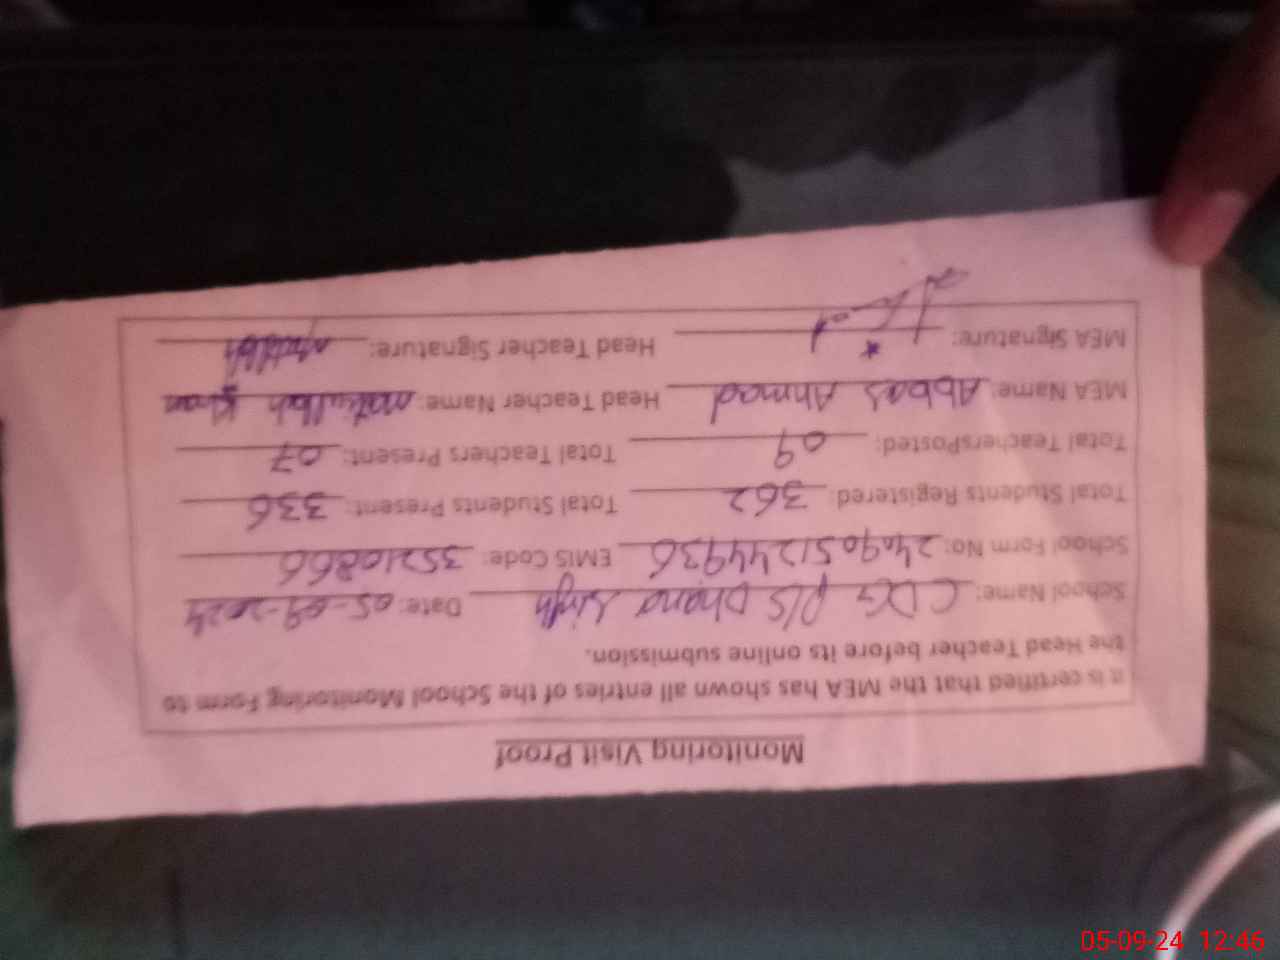 Monitoring Visit Proof
It is certified that the MEA has shown all entries of the School Monitoring Form to
the Head Teacher before its online submission.
School Name: CDG P/S Dhana Singh Date: 05-09-2024
School Form No: 2409051244936 EMIS Code: 35210866
Total Students Registered: 362 Total Students Present: 336
Total TeachersPosted: 09 Total Teachers Present: 07
MEA Name: Abbas Ahmad Head Teacher Name: Matiullah Khan
MEA Signature: Head Teacher Signature:
05-09-24 12:46